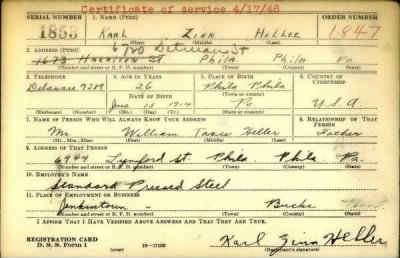 Certificate of service 4/17/46
SERIAL NUMBER 1. NAME (Print) ORDER NUMBER
1853 Karl Zinn Heller 1847
(First) (Middle) (Last)
2. ADDRESS (Print)
1673 Harrison St Phila Phila Pa
(Number and street or R. F. D. number) (Town) (County) (State)
3. TELEPHONE 4. AGE IN YEARS 5. PLACE OF BIRTH 6. COUNTRY OF CITIZENSHIP
Delaware 9219 26 Phila Phila
DATE OF BIRTH (Town) (County)
June 13 1914 Pa U.S.A
(Exchange) (Number) (Mo.) (Day) (Yr.) (State or country)
7. NAME OF PERSON WHO WILL ALWAYS KNOW YOUR ADDRESS 8. RELATIONSHIP OF THAT PERSON
Mr William Heller Father
(Mr., Mrs., Miss) (First) (Middle) (Last)
9. ADDRESS OF THAT PERSON
6944 Lynford St. Phila. Phila Pa.
(Number and street or R. F. D. number) (Town) (County) (State)
10. EMPLOYER'S NAME
Standard Pressed Steel
11. PLACE OF EMPLOYMENT OR BUSINESS
Jenkintown Bucks
(Number and street or R. F. D. number) (Town) (County) (State)
I AFFIRM THAT I HAVE VERIFIED ABOVE ANSWERS AND THAT THEY ARE TRUE.
REGISTRATION CARD
D. S. S. Form 1 (over) 16—17105 Karl Zinn Heller
(Registrant's signature)